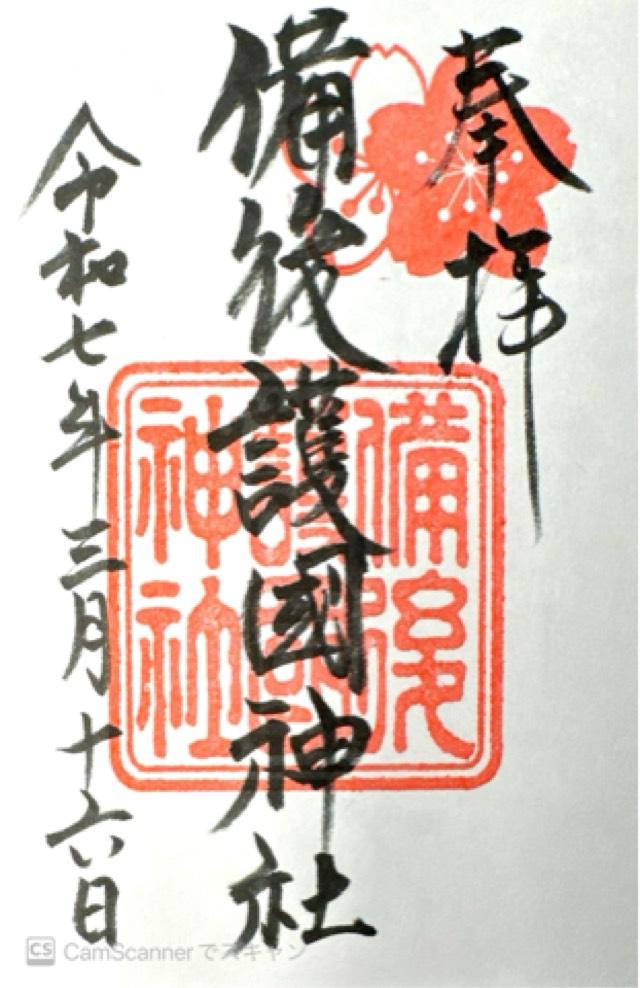 奉拝
備後護國神社
令和七年三月十六日
備後
護國
神社
CS CamScannerでスキャン